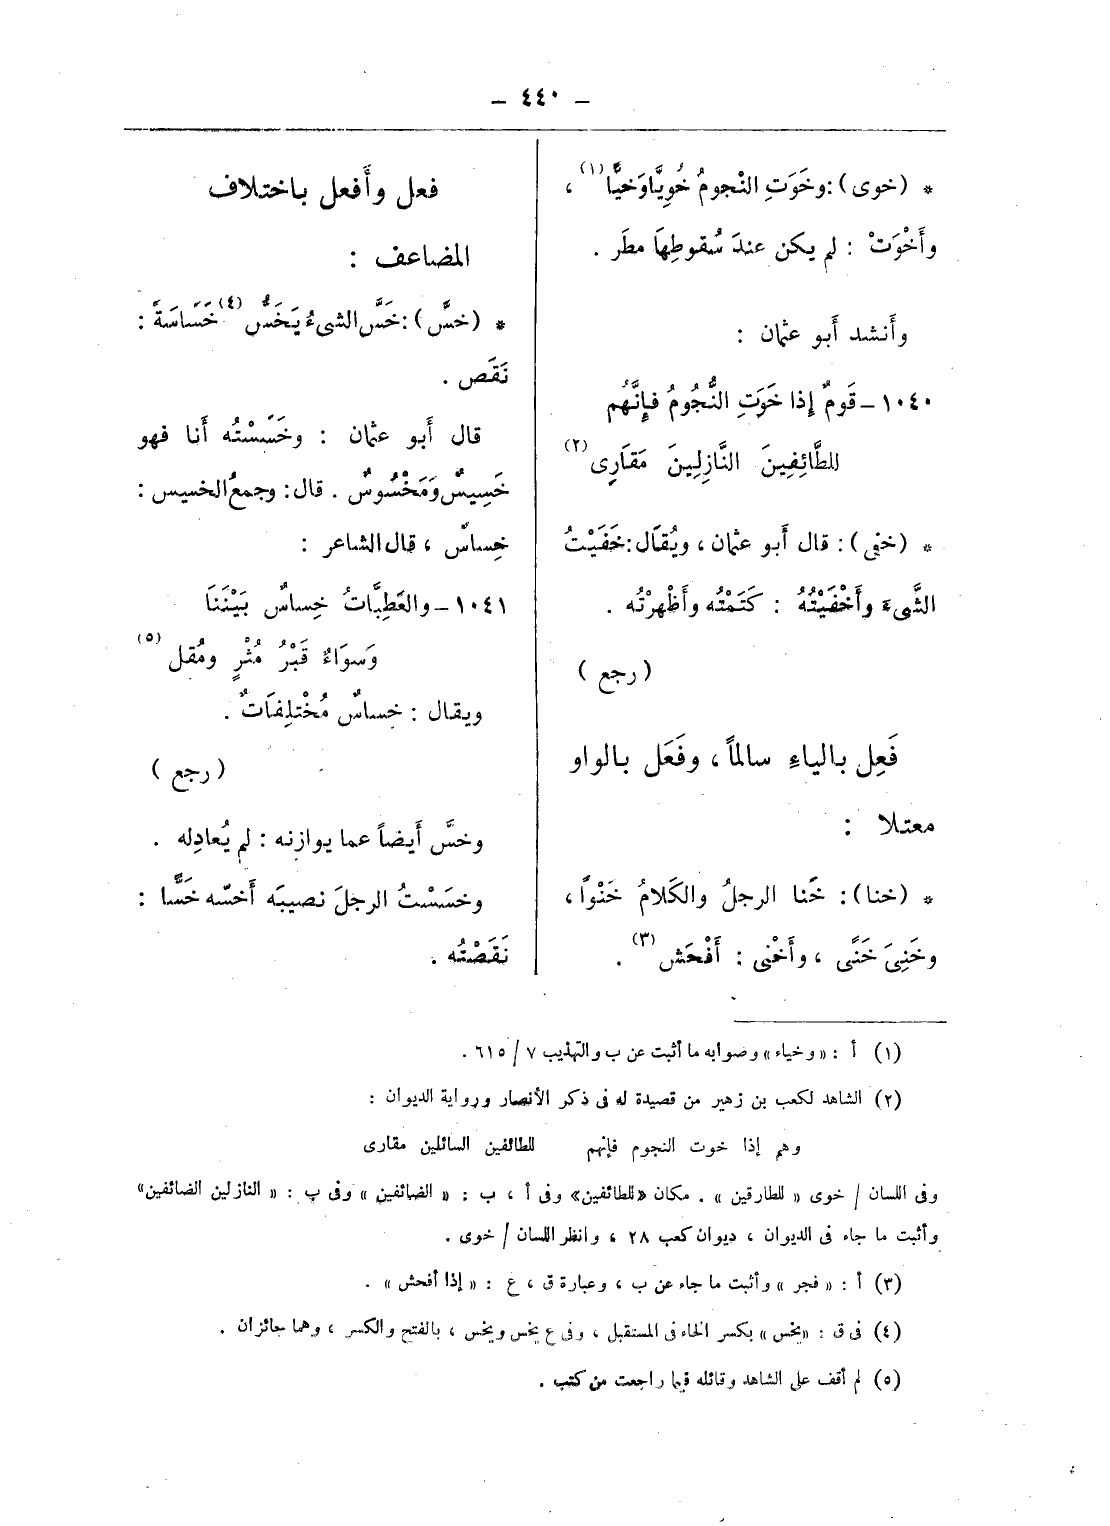 – ٤٤٠ –
* (خوى) : وخَوَتِ النْجومُ خُوِيًّا وَخيًّا(١) ،
وأَخْوَتْ : لم يكن عندَ سُقوطِهَا مطَر .
وأَنشد أَبو عثمان :
١٠٤٠ – قَومٌ إِذا خَوَتِ النُّجُومُ فَإِنَّهُم
للطَّائِفِينَ النَّازِلِينَ مَقَارِى(٢)
* (خفى) : قال أَبو عثمان ، ويُقال : خَفَيْتُ
الشَّىءَ وأَخْفَيْتُهُ : كَتَمْتُه وأَظْهرْتُه .
(رجع)
فَعِل بالياءِ سالماً ، وفَعَل بالواو
معتلا :
* (خنا) : خَنا الرجلُ والكَلامُ خَنْواً ،
وخَنِىَ خَنًى ، وأَخْنى : أَفْحَش(٣) .
فعل وأَفعل باختلاف
المضاعف :
* (خسَّ) : خَسَّ الشىءُ يَخَسُّ(٤) خَسَاسَةً :
نَقَص .
قال أَبو عثمان : وخَسَسْتُه أَنا فهو
خَسِيسٌ وَمَخْسُوسٌ . قال : وجمعُ الخسيس :
خِساسٌ ، قال الشاعر :
١٠٤١ – والعَطِيَّاتُ خِساسٌ بَيْنَنَا
وَسوَاءٌ قَبْرُ مُثْرٍ ومُقل(٥)
ويقال : خِساسٌ مُخْتلِفَاتٌ .
(رجع)
وخسَّ أَيضاً عما يوازنه : لم يُعادِله .
وخسَسْتُ الرجلَ نصيبَه أَخسّه خَسًّا :
نَقَصْتُه .
(١) أ : «وخياء» وصوابه ما أثبت عن ب والتهذيب ٧ / ٦١٥ .
(٢) الشاهد لكعب بن زهير من قصيدة له فى ذكر الأنصار ورواية الديوان :
وهم إذا خوت النجوم فإنهم للطائفين السائلين مقارى
وفى اللسان / خوى «للطارقين» . مكان «للطائفين» وفى أ ، ب : «الضائفين» وفى ب : «النازلين الضائفين»
وأثبت ما جاء فى الديوان ، ديوان كعب ٢٨ ، وانظر اللسان / خوى .
(٣) أ : «فجر» وأثبت ما جاء عن ب ، وعبارة ق ، ع : «إذا أفحش» .
(٤) فى ق : «يخس» بكسر الخاء فى المستقبل ، وفى ع يخس ويخس ، بالفتح والكسر ، وهما جائزان .
(٥) لم أقف على الشاهد وقائله فيما راجعت من كتب .